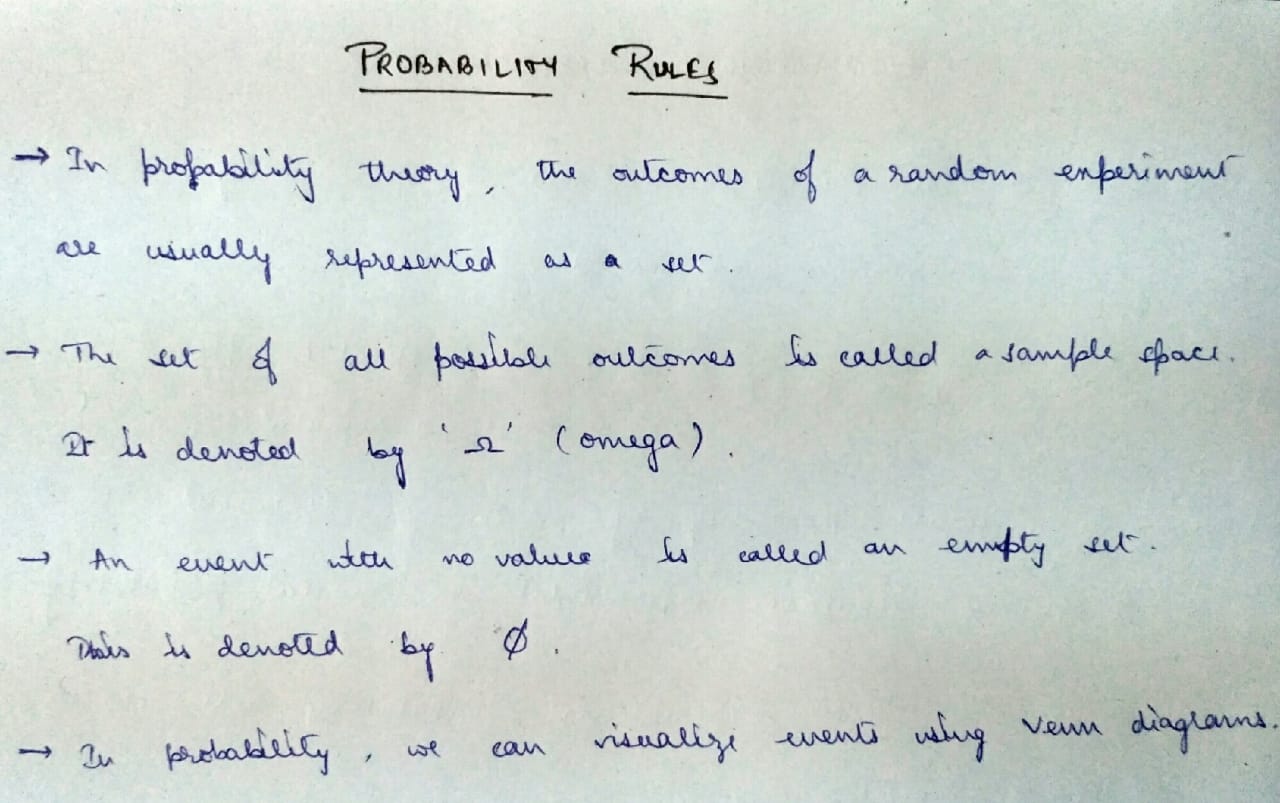 PROBABILITY RULES
→ In probability theory, the outcomes of a random experiment
are usually represented as a set.
→ The set of all possible outcomes is called a sample space.
It is denoted by 'Ω' (omega).
→ An event with no values is called an empty set.
This is denoted by Ø.
→ In probability, we can visualize events using Venn diagrams.